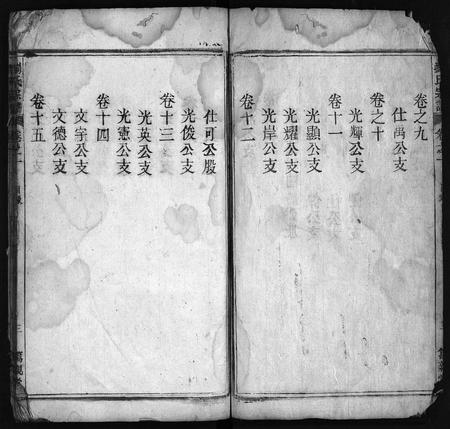 卷之九
仕禹公支
卷之十
光輝公支
卷十一
光顯公支
光耀公支
光岸公支
卷十二
仕可公股
光俊公支
卷十三
光英公支
光憲公支
卷十四
文宇公支
文德公支
卷十五